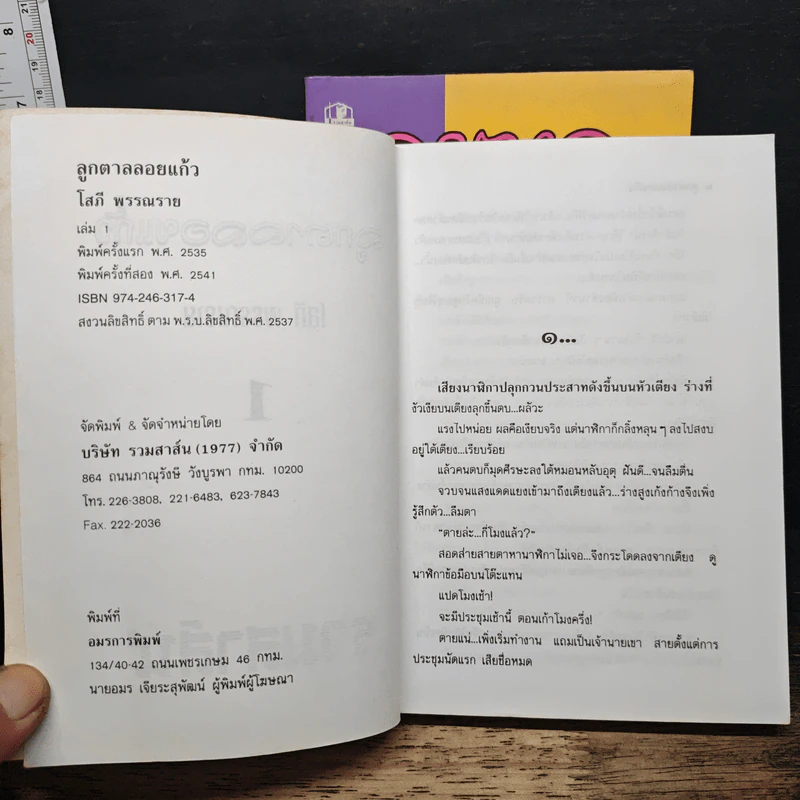 ลูกตาลลอยแก้ว
โสภี พรรณราย
เล่ม 1
พิมพ์ครั้งแรก พ.ศ. 2535
พิมพ์ครั้งที่สอง พ.ศ. 2541
ISBN 974-246-317-4
สงวนลิขสิทธิ์ ตาม พ.ร.บ.ลิขสิทธิ์ พ.ศ. 2537
จัดพิมพ์ & จัดจำหน่ายโดย
บริษัท รวมสาส์น (1977) จำกัด
864 ถนนภาณุรังษี วังบูรพา กทม. 10200
โทร. 226-3808, 221-6483, 623-7843
Fax. 222-2036
พิมพ์ที่
อมรการพิมพ์
134/40-42 ถนนเพชรเกษม 46 กทม.
นายอมร เจียระสุพัฒน์ ผู้พิมพ์ผู้โฆษณา
๑...
เสียงนาฬิกาปลุกกวนประสาทดังขึ้นบนหัวเตียง ร่างที่
งัวเงียบนเตียงลุกขึ้นตบ...ผลัวะ
แรงไปหน่อย ผลคือเงียบจริง แต่นาฬิกาก็กลิ้งหลุน ๆ ลงไปสงบ
อยู่ใต้เตียง...เรียบร้อย
แล้วคนตบก็มุดศีรษะลงใต้หมอนหลับอุตุ ฝันดี...จนลืมตื่น
จวบจนแสงแดดแยงเข้ามาถึงเตียงแล้ว...ร่างสูงเก้งก้างจึงเพิ่ง
รู้สึกตัว...ลืมตา
"ตายล่ะ...กี่โมงแล้ว?"
สอดส่ายสายตาหานาฬิกาไม่เจอ...จึงกระโดดลงจากเตียง ดู
นาฬิกาข้อมือบนโต๊ะแทน
แปดโมงเช้า!
จะมีประชุมเช้านี้ ตอนเก้าโมงครึ่ง!
ตายแน่...เพิ่งเริ่มทำงาน แถมเป็นเจ้านายเขา สายตั้งแต่การ
ประชุมนัดแรก เสียชื่อหมด
8
7
21
20
19
18